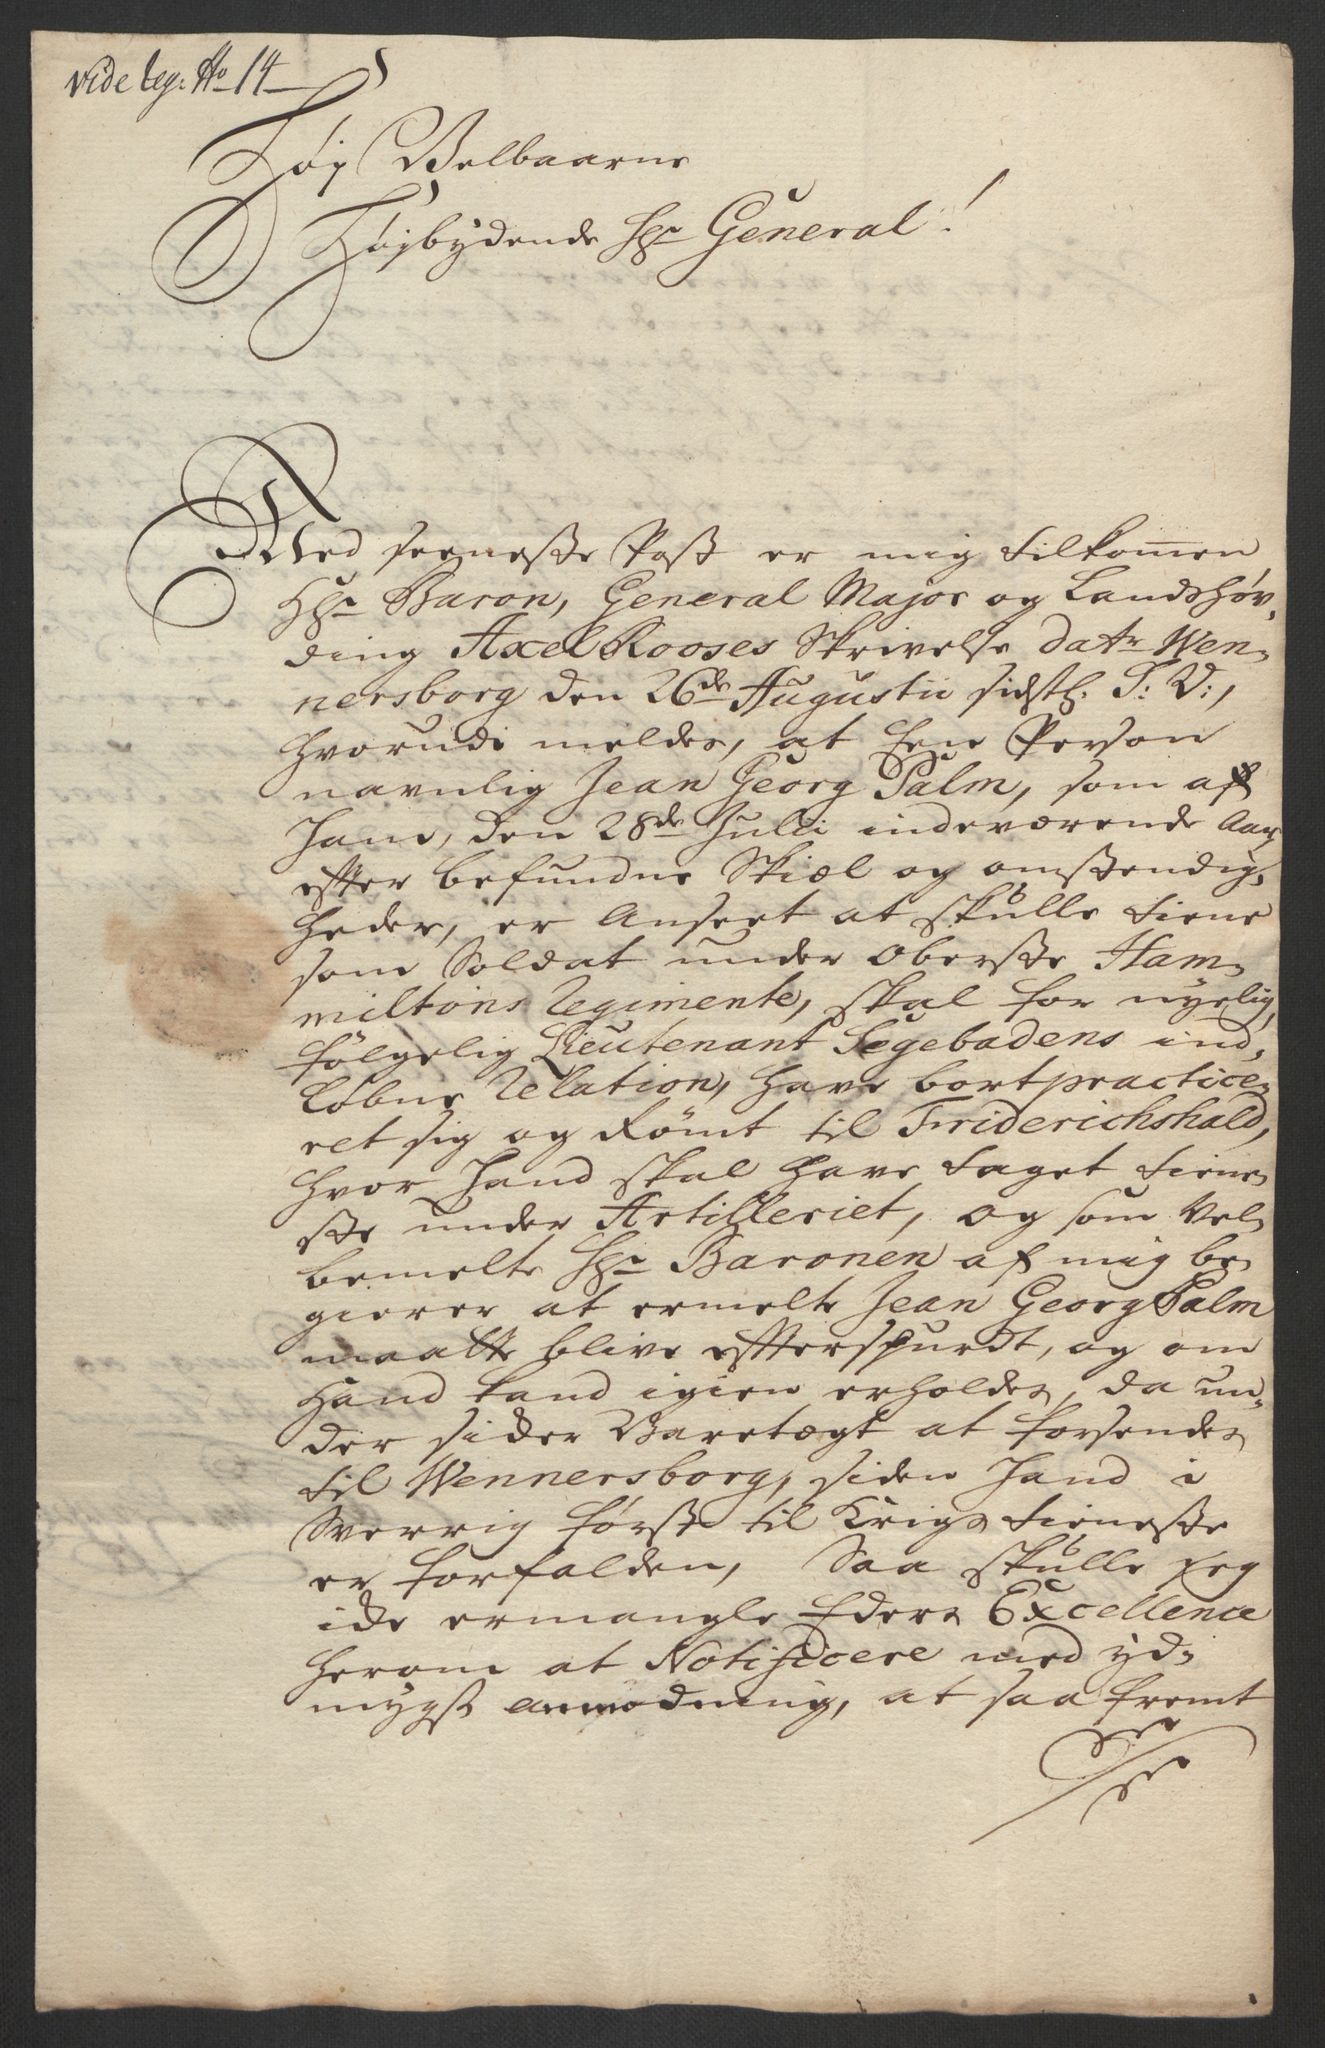 vide reg: No 14
Høy Velbaarne
Høybydende Hr General!
Med seeneste Post er mig tilkommen
Hr Baron, General Major og Landshøv-
ding Axel Rooses Skrivelse dat: Wen-
nersborg den 26de Augustii sidstl. S: V:,
hvorudi meldes, at Een Person
navnlig Jean Georg Palm, som af
ham, den 28de Julii indeværende Aar,
efter befundne Skiæl og omstendig-
heder, er Anseet at skulle tiene
som Soldat under Oberste Ham-
miltons Regimente, skal for nyelig,
følgelig Lieutenant Segebadens ind-
løbne Relation, have bortpractice-
ret sig og rømt til Friderichshald,
hvor hand skal have taget tiene-
ste under Artilleriet, og som Vel-
bemelte Hr Baronen af mig be-
gierer at ermelte Jean Georg Palm
maatte blive efterspurdt, og om
hand kand igien erholdes, da un-
der sicker Varetægt at forsendes
til Wennersborg, siden hand i
Sverrig først til Krigs tieneste
er forfalden, Saa skulle jeg
icke ermangle Eders Excellence
herom at Notificere med yd-
mygst anmodning, at saa fremt